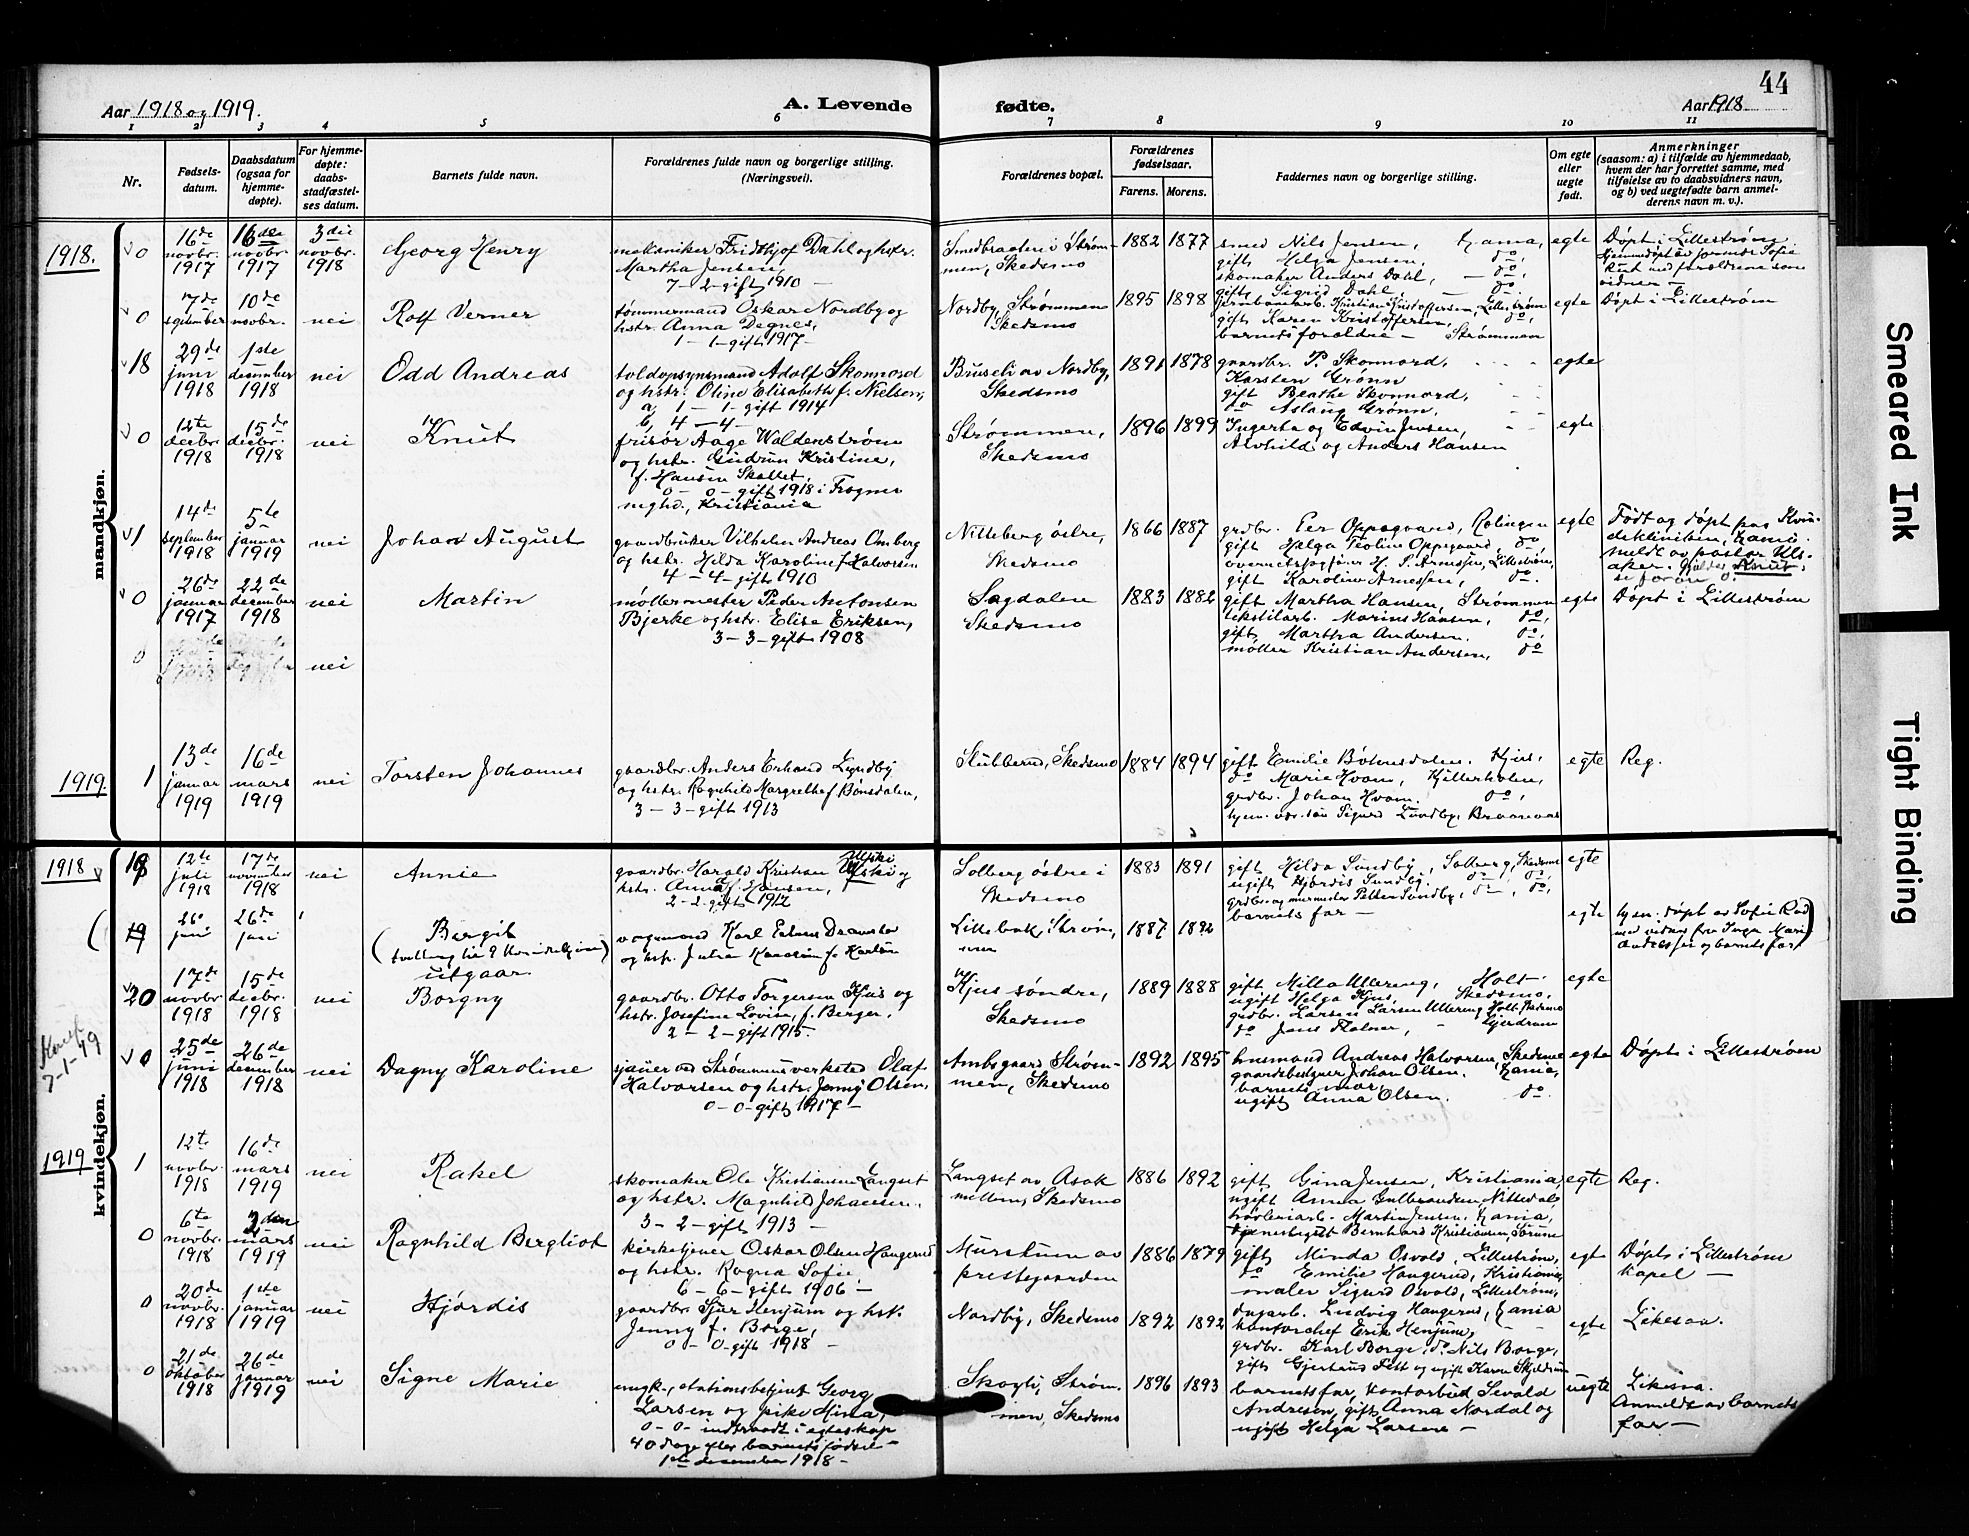 44
Aar 1918 og 1919.
A. Levende fødte.
Aar 1918
1 2 3 4 5 6 7 8 9 10 11
Nr.
Fødsels-
datum.
Daabsdatum
(ogsaa for
hjemme-
døpte).
For hjemme-
døpte:
daabs-
stadfæstel-
ses datum.
Barnets fulde navn.
Forældrenes fulde navn og borgerlige stilling.
(Næringsvei).
Forældrenes bopæl.
Forældrenes
fødselsaar.
Farens. Morens.
Faddernes navn og borgerlige stilling.
Om egte
eller
uegte
født.
Anmerkninger
(saasom: a) i tilfælde av hjemmedaab,
hvem der har forrettet samme, med
tilføielse av to daabsvidners navn,
og b) ved uegtefødte barn anmel-
derens navn m. v.).
mandkjøn.
1918.
0
16de novbr. 1917
16de novbr. 1917
3die novbr. 1918
Georg Henry
mekaniker Fridthjof Dahl og hstr.
Martha Jensen,
7-2-gift 1910 -
Strøm-
men, Skedsmo
1882 1877
smed Nils Jensen, Kania,
gift Helga Jensen, do,
skomaker Anders Dahl, - do,
gift Sigrid Dahl, - do,
egte
Døpt i Lillestrøm
0
7de september
10de novbr.
nei
Rolf Verner
tømmermand Oskar Nordby og
hstr. Anna Degnes,
1-1-gift 1917-
Nordby, Strømmen
Skedsmo
1895 1898
Kristian Kristoffersen, Lillestrøm
gift Karen Kristoffersen, do,
barnets forældre - Strømmen
egte
Døpt i Lillestrøm
18
29de juni 1918
1ste desember 1918
nei
Odd Andreas
toldopsynsmand Adolf Skonnord
og hstr. Oline Elisabeth f. Nielsen,
a, 1-1-gift 1914
b, 4-4-
Bruseli av Nordby,
Skedsmo
1891 1878
gaardbr. P. Skonnord,
Karsten Grønn
gift Beathe Skonnord,
do Aslaug Grønn,
egte
0
desbr. 1918
15de desbr. 1918
nei
Knut
frisør Aage Waldenstrøm
og hstr. Gudrun Kristine,
f. Hansen Skallet,
0-0-gift 1918 i Frogner
mghd., Kristiania
Strømmen,
Skedsmo
1896 1899
Ingerta og Edvin Jensen,
Alvhild og Anders Hansen
egte
1
14de september 1918
5te januar 1919
nei
Johan August
gaardbruker Vilhelm Andreas Omberg
og hstr. Hilda Karoline f. Halvorsen
4-4-gift 1910
Nitteberg østre,
Skedsmo
1866 1887
grdbr. Per Oppegaard, Rælingen
gift Helga Teoline Oppegaard, do
H. P. Arnessen, Lillestrøm,
gift Karoline Arnessen, do.
egte
Født og døpt paa Kvin-
deklinikken, Kania.
0
26de januar 1917
22de desember 1918
nei
Martin
møllermester Peder Antonsen
Bjerke og hstr. Elise Eriksen,
3-3-gift 1908
Sagdalen
Skedsmo
1883 1882
gift Martha Hansen, Strømmen
tekstilarb. Marius Hansen, do,
gift Martha Andersen. do
møller Kristian Andersen, do
egte
Døpt i Lillestrøm
0
nei
1919.
1
13de januar 1919
16de mars 1919
nei
Torsten Johannes
gaardbr. Anders Erland Lyndby
og hstr. Ragnhild Margrethe f. Bønsdalen,
3-3-gift 1913
Stubberud, Skedsmo
1884 1894
gift Emilie Bønsdalen, Kjus,
do Marie Hvam,
grdbr. Johan Hvam. do,
egte
Reg.
kvindekjøn.
1918
12te juli 1918
17de november 1918
nei
Annie
gaardbr. Harald Kristian Ulski og
hstr. Anna f. Hansen,
2-2-gift 1912
Solberg østre i
Skedsmo
1883 1891
gift Hilda Sundby, Solberg, Skedsmo
ugift Hjørdis Sundby, do, do,
grdbr. og murmester Petter Sundby, do, do,
barnets far -
egte
19
26 juni
26de juni
Bergit
utgaar
Karl
Lillebak, Strøm,
men
1887 1892
egte
20
17de novbr. 1918
15de desbr. 1918
nei
Borgny
gaardbr. Otto Torgersen Kjus og
hstr. Josefine Lovise, f. Berger,
2-2-gift 1915.
Kjus søndre,
Skedsmo
1889 1888
gift Milla Ullereng, Holt.
ugift Helga Kjus, Skedsmo,
grdbr. Larsen Ullereng Holt, Skedsmo
do Jens - Gjerdrum
egte
7-1-49
0
25de juni 1918
26de desember 1918
nei
Dagny Karoline
sjauer ved Strømmens verksted Olaf
Halvorsen og hstr. Jenny Olsen,
0-0-gift 1917-
Ambogaard, Strøm-
men, Skedsmo
1892 1895
husmand Andreas Halvorsen, Skedsmo
gaardbestyrer Johan Olsen, Kania,
barnets mor,
ugift Anna Olsen. do.
egte
Døpt i Lillestrøm
1919
1
12te novbr. 1918
16de mars 1919
nei
Rakel
skomaker Ole Kristiansen Langset
og hstr. Magnhild Johansen.
3-2-gift 1913-
Langset av Asak
mellem, Skedsmo
1886 1892
gift Gina Jensen, Kristiania,
ugift Anna Gulbrandsen, Nittedal,
Martin Jensen, Kania,
Bernhard Kristiansen, Sørum
egte
Reg.
0
6te novbr. 1918
2den mars 1919
nei
Ragnhild Bergliot
kirketjener Oskar Olsen Haugerud
og hstr. Ragna Sofie,
6-6-gift 1906-
Murstuen av
prestegaarden
1886 1879
gift Minda Osvold, Lillestrøm,
do Emilie Haugerud, Kristiania,
maler Sigurd Osvold, Lillestrøm,
Ludvig Haugerud, Kania
egt
Døpt i Lillestrøm
kapel -
0
20de novbr. 1918
1ste januar 1919
nei
Hjørdis
gaardbr. Sjur Henjum og hst.
Jenny f. Borge,
0-0-gift 1918 -
Nordby, Skedsmo
1892 1892
kontorchef Erik Henjum,
grdbr. Karl Borge, do Nils Borge,
egte
Likesaa.
0
21de oktober 1918
26de januar 1919
nei
Signe Marie
stationsbetjent Georg
Larsen og pike Hina,
0-0-indtraadt i egteskap
40 dage efter barnets fødsel-
1ste desember 1918-
Skogli, Strøm-
men, Skedsmo
1896 1893
barnets far, kontorbud Sevald
Andresen, gift Anna Nordal og
ugift Helga Larsen -
uegte
Likesaa.
Anmeldt av barnets
far -
Smeared Ink
Tight Binding